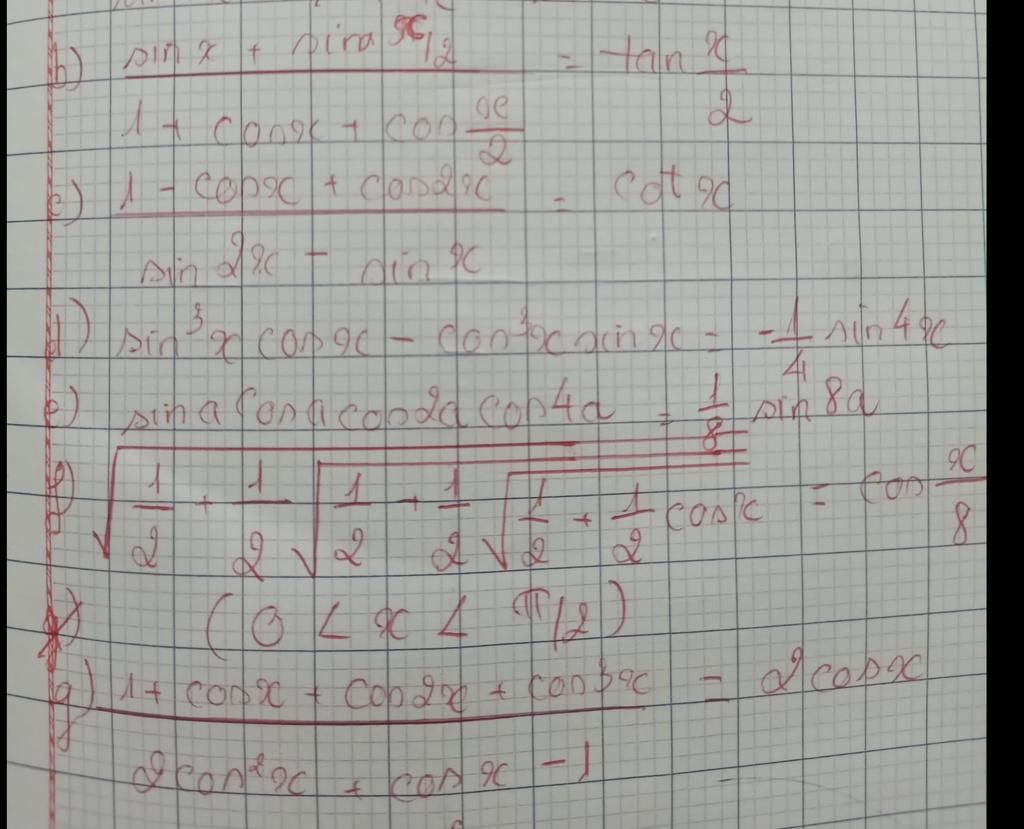 b) (sin x + sin x/2) / (1 + cos x + cos x/2) = tan x/2
c) (1 - cos x + cos 2x) / (sin 2x - sin x) = cot x
d) sin³x cos x - cos³x sin x = -1/4 sin 4x
e) sin a cos a cos 2a cos 4a = 1/8 sin 8a
f) √(1/2 + 1/2 √(1/2 + 1/2 √(1/2 + 1/2 cos x))) = cos x/8
(0 < x < π/2)
g) (1 + cos x + cos 2x + cos 3x) / (2cos²x + cos x - 1) = 2 cos x